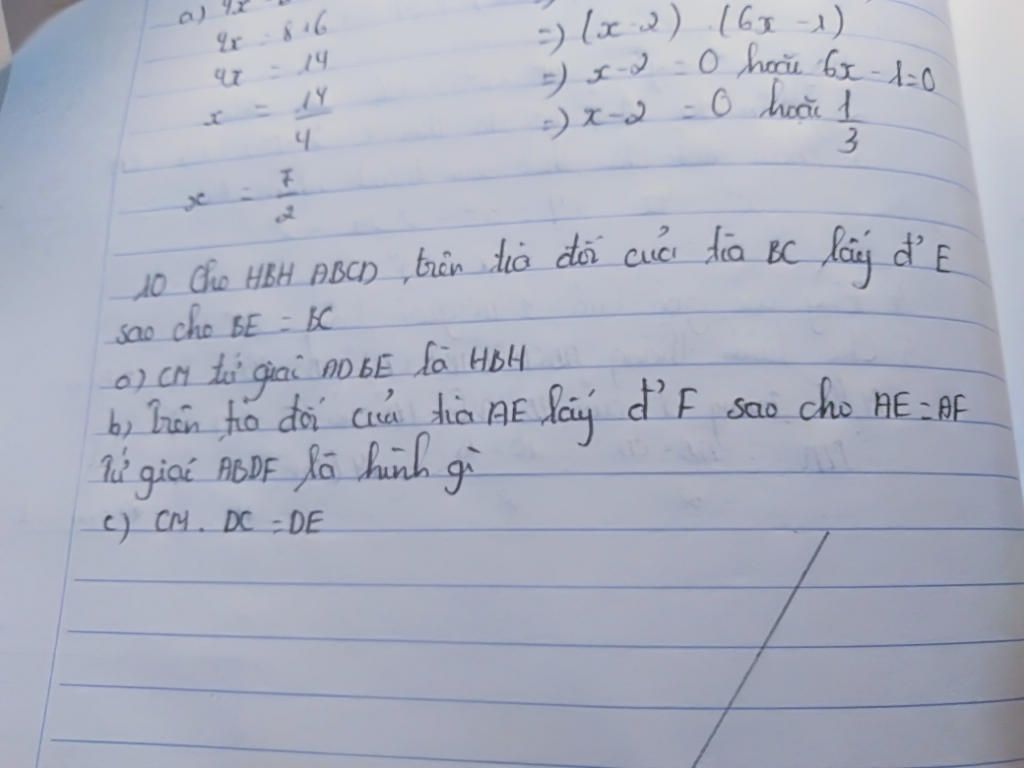 a) 4x
4x = 8+6
4x = 14
x = 14/4
x = 7/2
=) (x-2) . (6x - 1)
=) x-2 = 0 hoặc 6x - 1=0
=) x-2 = 0 hoặc 1/3
10 Cho HBH ABCD, trên tia đối của tia BC lấy đ' E
sao cho BE = BC
a) CM tứ giác ADBE là HBH
b, Trên tia đối của tia AE lấy đ' F sao cho AE = AF
Tứ giác ABDF là hình gì
c) CM. DC = DE